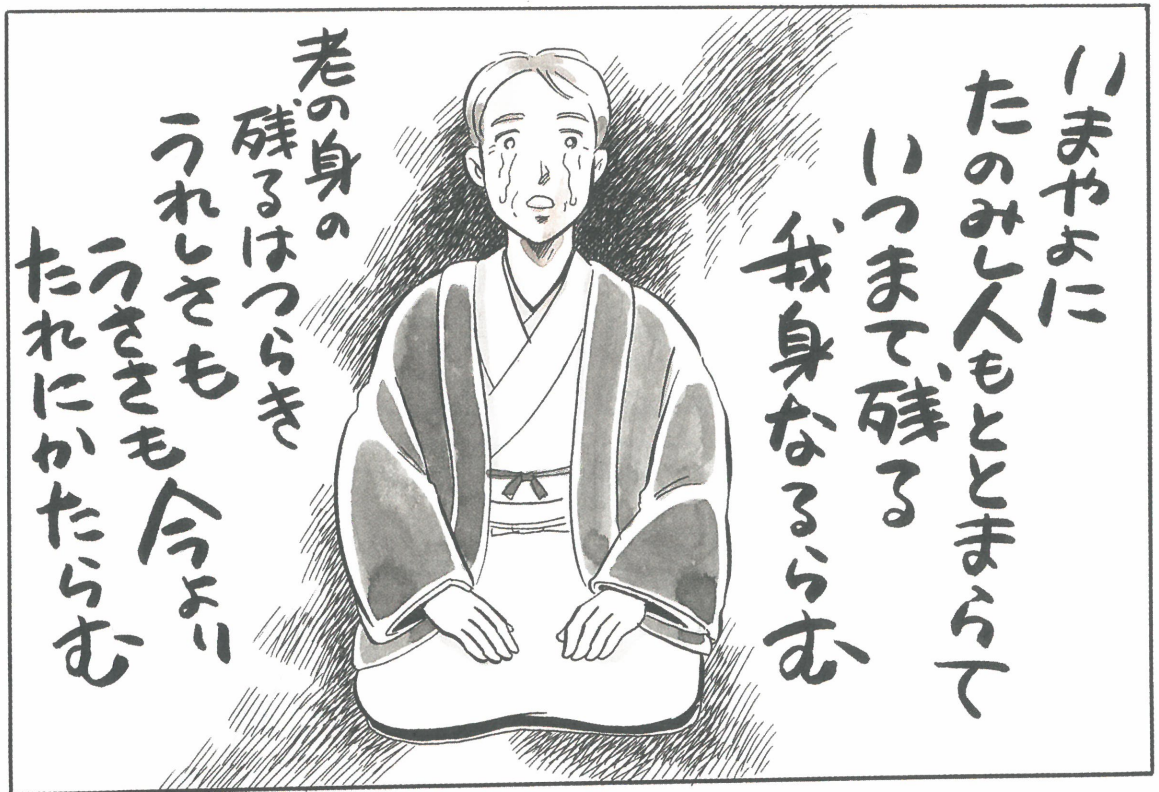 いまやよに
たのみし人もととまらて
いつまて残る
我身なるらむ
老の身の
残るはつらき
うれしさも
うささも今より
たれにかたらむ